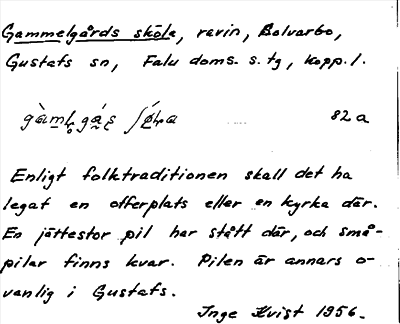 Gammelgårds sköle, ravin, Bolvarbo,
Gustafs sn, Falu doms. s. tg, Kopp. l.
82 a
Enligt folktraditionen skall det ha
legat en offerplats eller en kyrka där.
En jättestor pil har stått där, och små-
pilar finns kvar. Pilen är annars o-
vanlig i Gustafs.
Inge Kvist 1956.